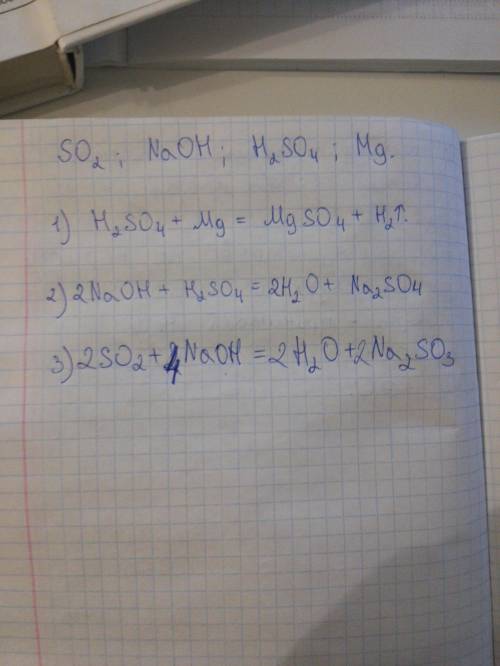 SO₂; NaOH; H₂SO₄; Mg.
1) H₂SO₄ + Mg = MgSO₄ + H₂↑.
2) 2NaOH + H₂SO₄ = 2H₂O + Na₂SO₄
3) 2SO₂ + 4NaOH = 2H₂O + 2Na₂SO₃